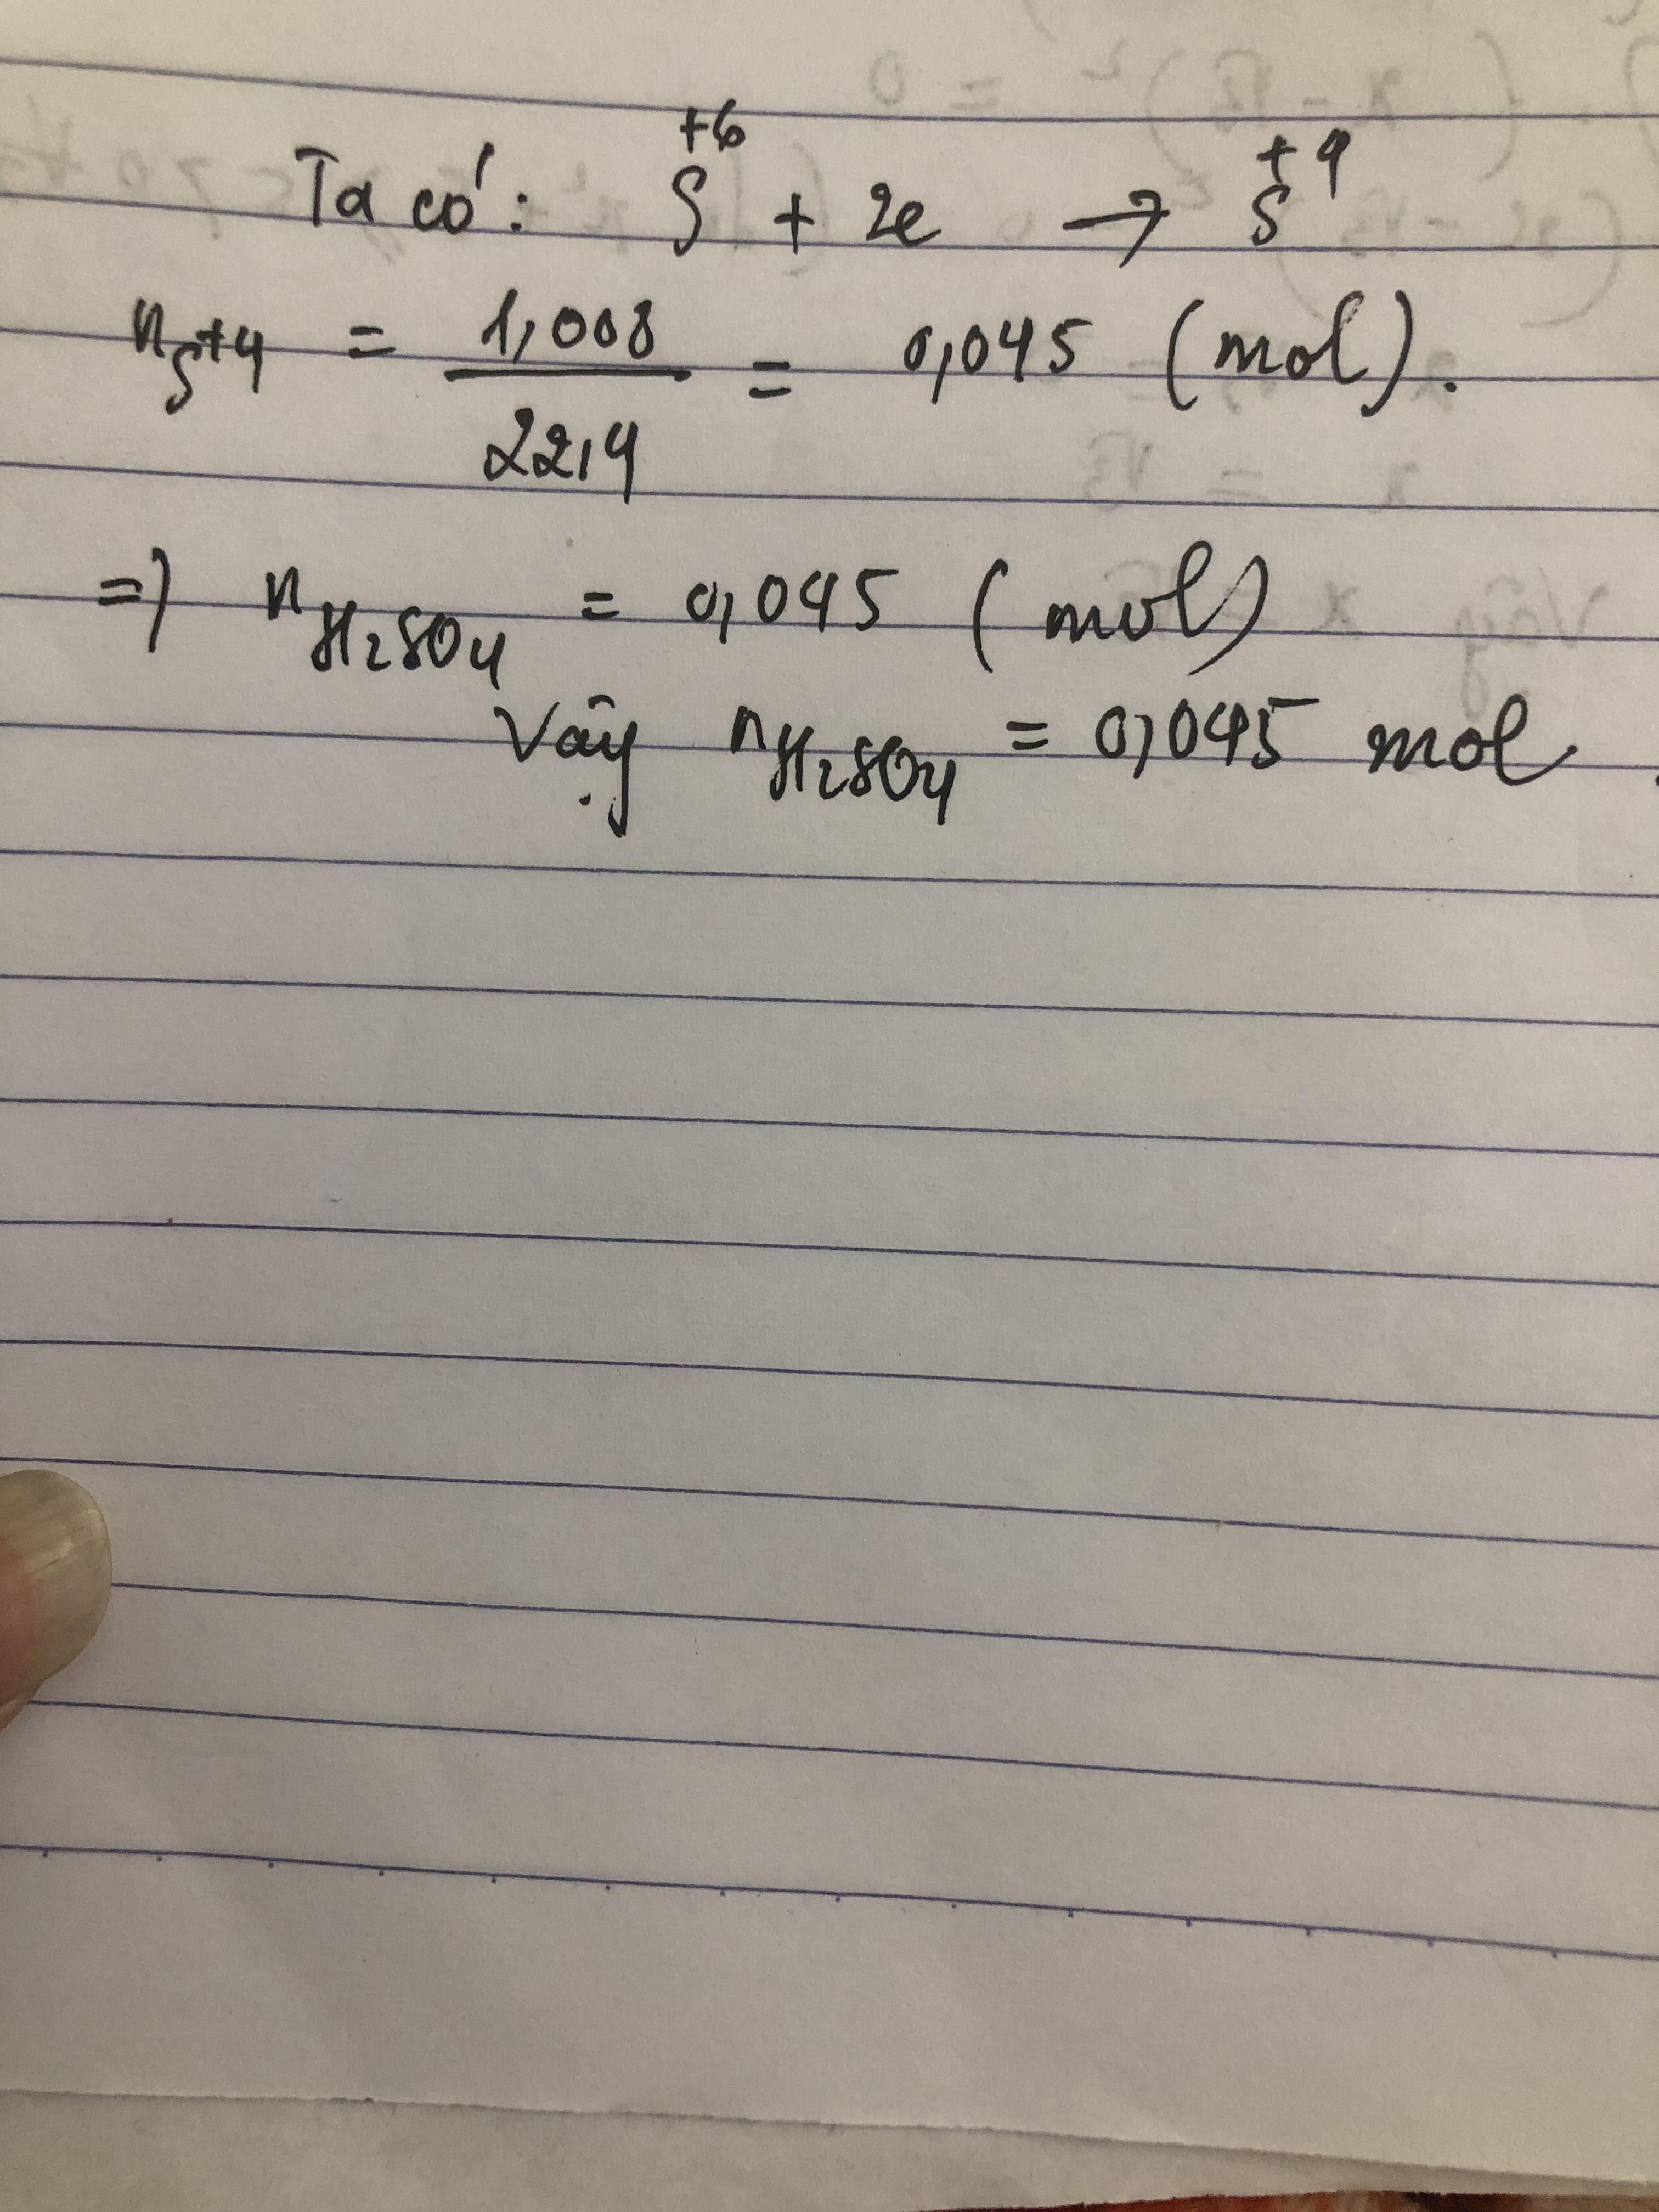 Ta có: S⁺⁶ + 2e → S⁺⁴
n S⁺⁴ = 1,008 / 22,4 = 0,045 (mol).
=> n H₂SO₄ = 0,045 (mol)
Vậy n H₂SO₄ = 0,045 mol.